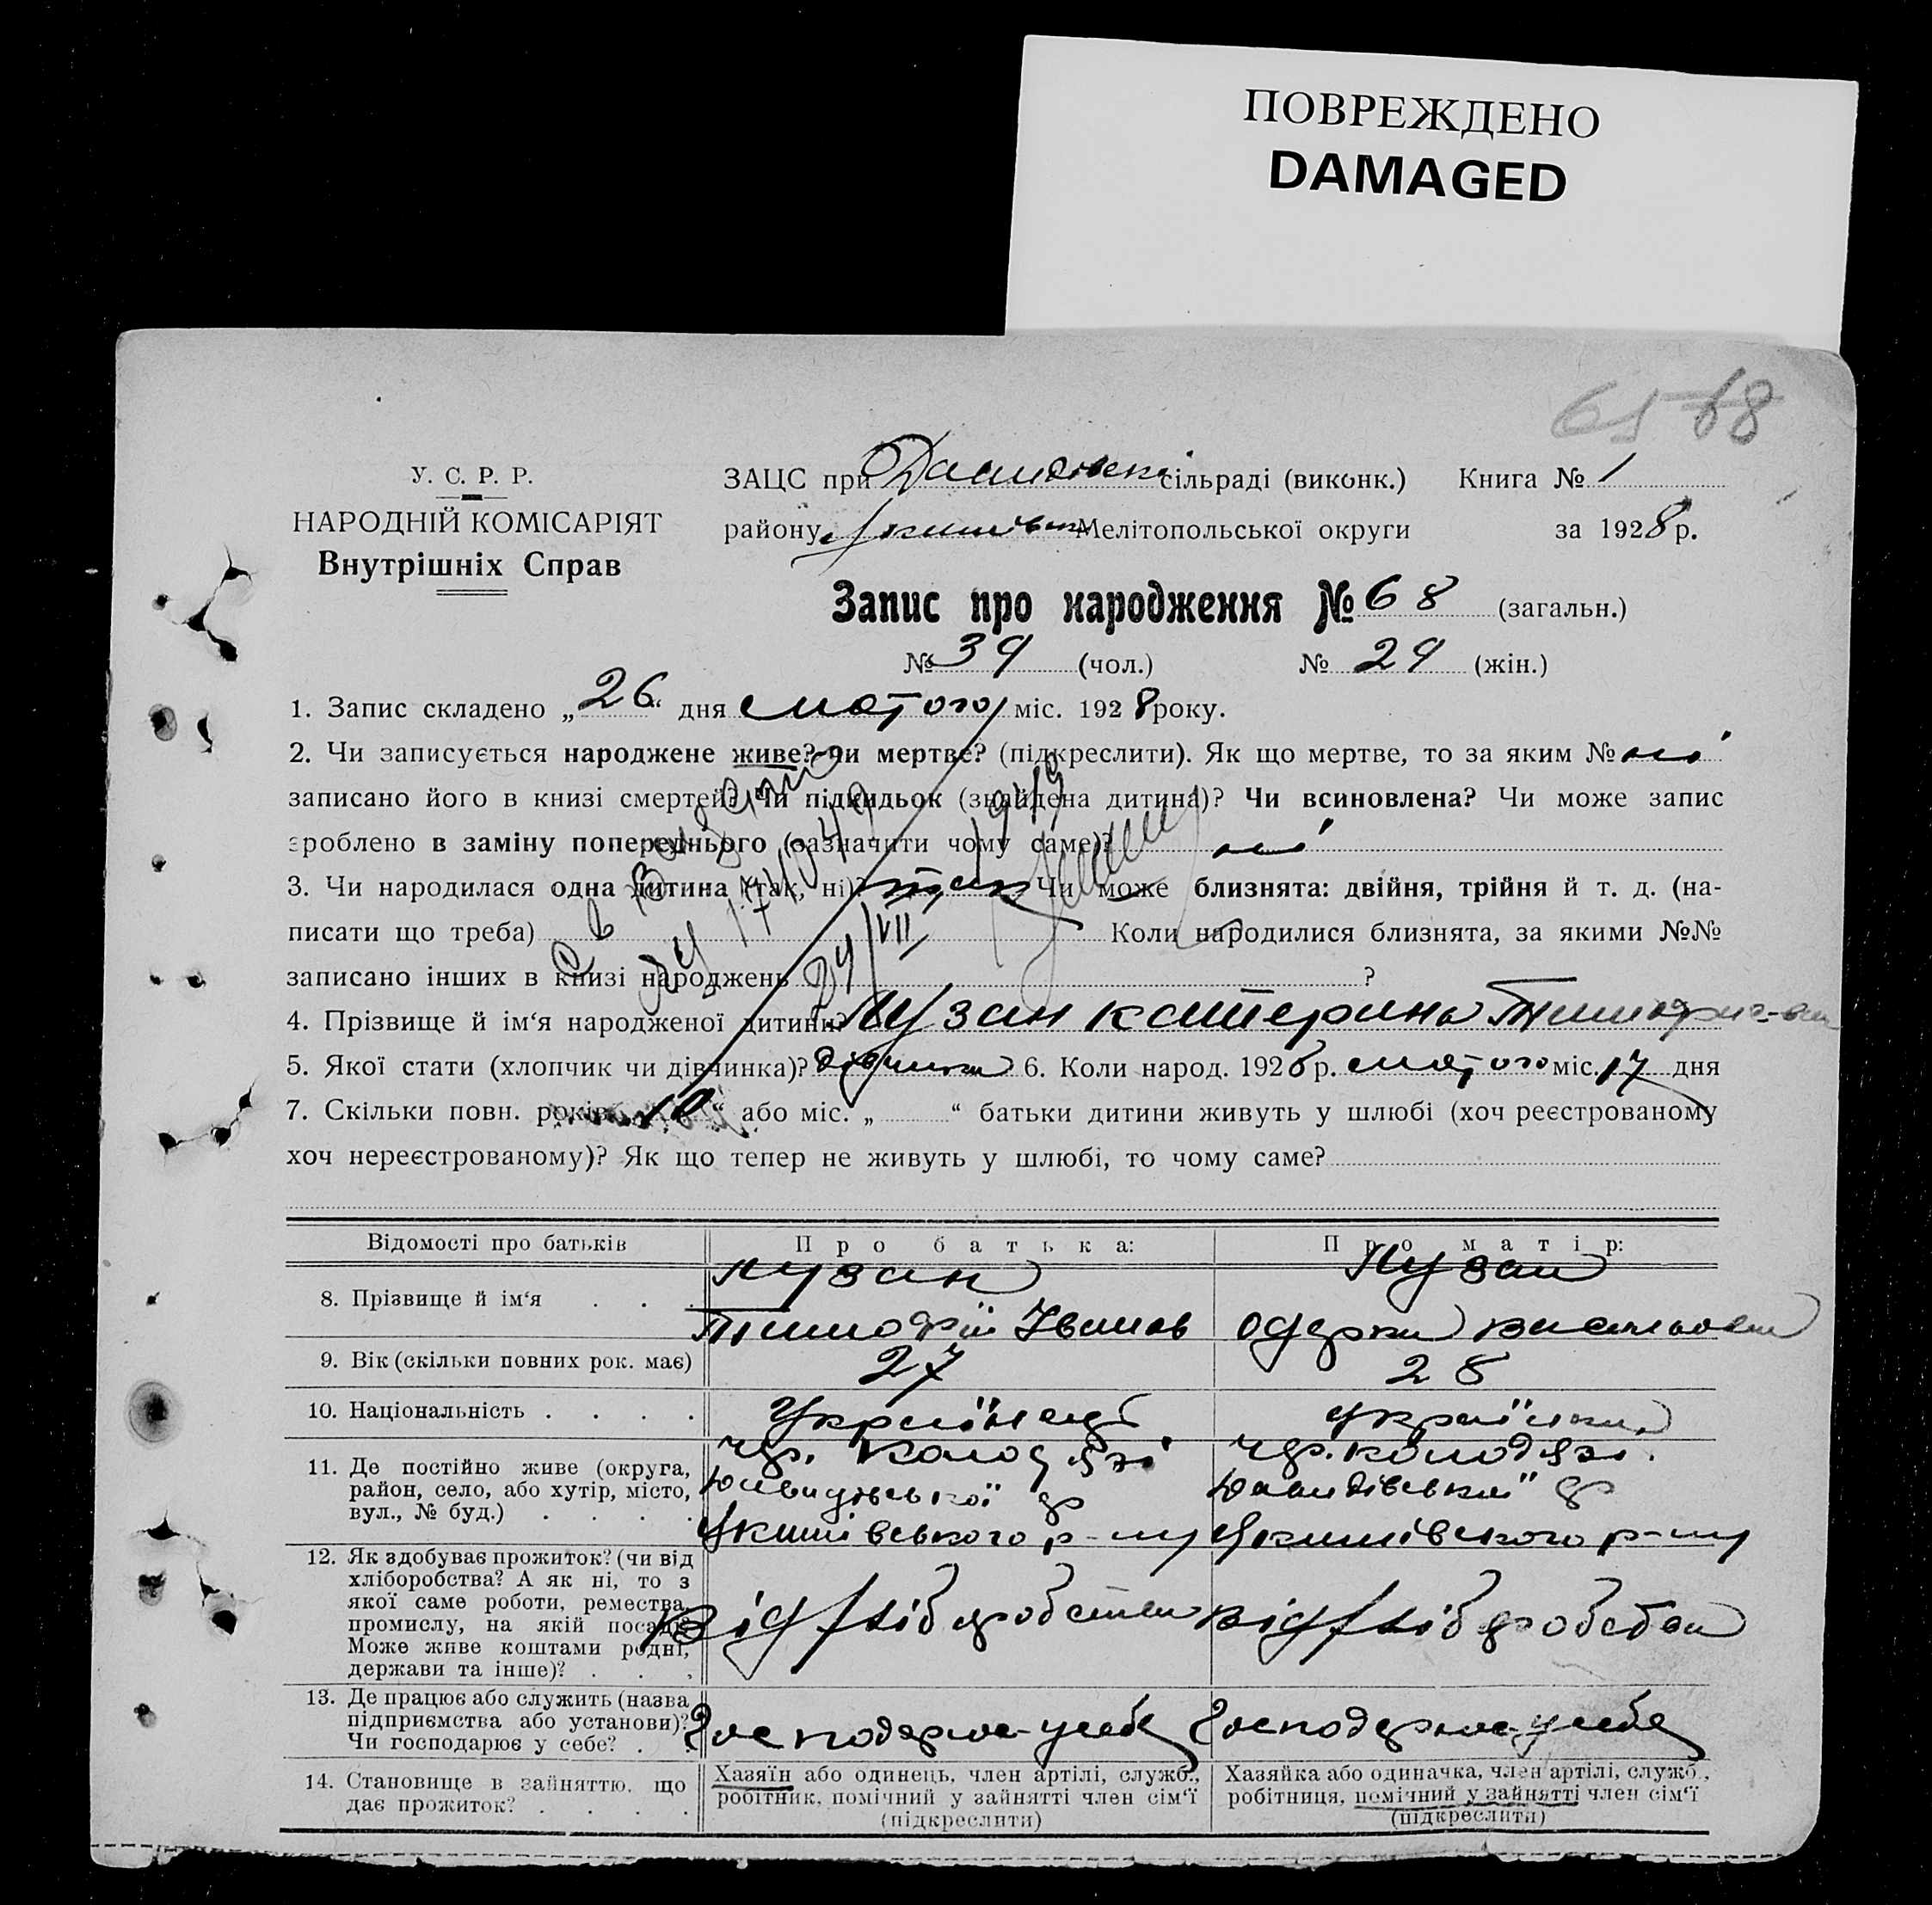 ПОВРЕЖДЕНО
DAMAGED
65 68
У. С. Р. Р.
НАРОДНІЙ КОМІСАРІЯТ
Внутрішніх Справ
ЗАЦС при Давидівські сільраді (виконк.) Книга № 1
району Мелітопольської округи за 1928 р.
Запис про народження № 68 (загальн.)
№ 39 (чол.) № 29 (жін.)
1. Запис складено „26“ дня лютого міс. 1928 року.
2. Чи записується народжене живе? чи мертве? (підкреслити). Як що мертве, то за яким № ні
записано його в книзі смертей? Чи підкидьок (знайдена дитина)? Чи всиновлена? Чи може запис
зроблено в заміну попереднього (зазначити чому саме)? ні
3. Чи народилася одна дитина (так, ні)? так Чи може близнята: двійня, трійня й т. д. (на-
писати що треба) Коли народилися близнята, за якими №№
записано інших в книзі народжень ?
4. Прізвище й ім‘я народженої дитини? Лузан Катерина
5. Якої стати (хлопчик чи дівчинка)? дівчинка 6. Коли народ. 1928 р. лютого міс. 17 дня
7. Скільки повн. років 10 “ або міс. „ “ батьки дитини живуть у шлюбі (хоч реєстрованому
хоч нереєстрованому)? Як що тепер не живуть у шлюбі, то чому саме?
Відомості про батьків Про батька: Про матір:
8. Прізвище й ім‘я Лузан Лузан
Тимофій Іванов
9. Вік (скільки повних рок. має) 27 28
10. Національність Українець українка
11. Де постійно живе (округа, район, село, або хутір, місто, вул., № буд.)
хут. Колодязі хут. Колодязі
Давидівської Давидівської
Якимівського р-ну Якимівського р-ну
12. Як здобуває прожиток? (чи від
хліборобства? А як ні, то з
якої саме роботи, ремества,
промислу, на якій посаді?
Може живе коштами родні,
держави та інше)?
від хліборобства від хліборобства
13. Де працює або служить (назва
підприємства або установи)?
Чи господарює у себе?
Господарює у себе Господарює у себе
14. Становище в зайняттю, що
дає прожиток?
Хазяїн або одинець, член артілі, служб.,
робітник, помічний у зайнятті член сім‘ї
(підкреслити)
Хазяйка або одиначка, член артілі, служб.,
робітниця, помічний у зайнятті член сім‘ї
(підкреслити)